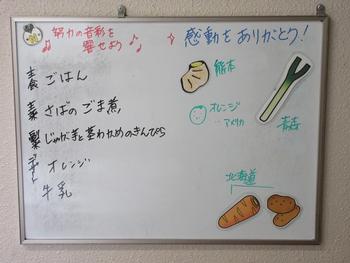 努力の音彩を
響せよう
感動をありがとう!
ごはん
さばのごま煮
じゃが芋と茎わかめのきんぴら
デザート オレンジ
牛乳
熊本
オレンジ
アメリカ
青森
北海道